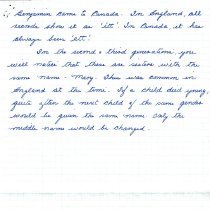 Benjamin came to Canada. In England, all
records show it as 'itt'. In Canada, it has
always been 'ett'.
In the second & third generations, you
will notice that there are sisters with the
same name - Mary. This was common in
England at the time. If a child died young,
quite often the next child of the same gender
would be given the same name. Only the
middle name would be changed.